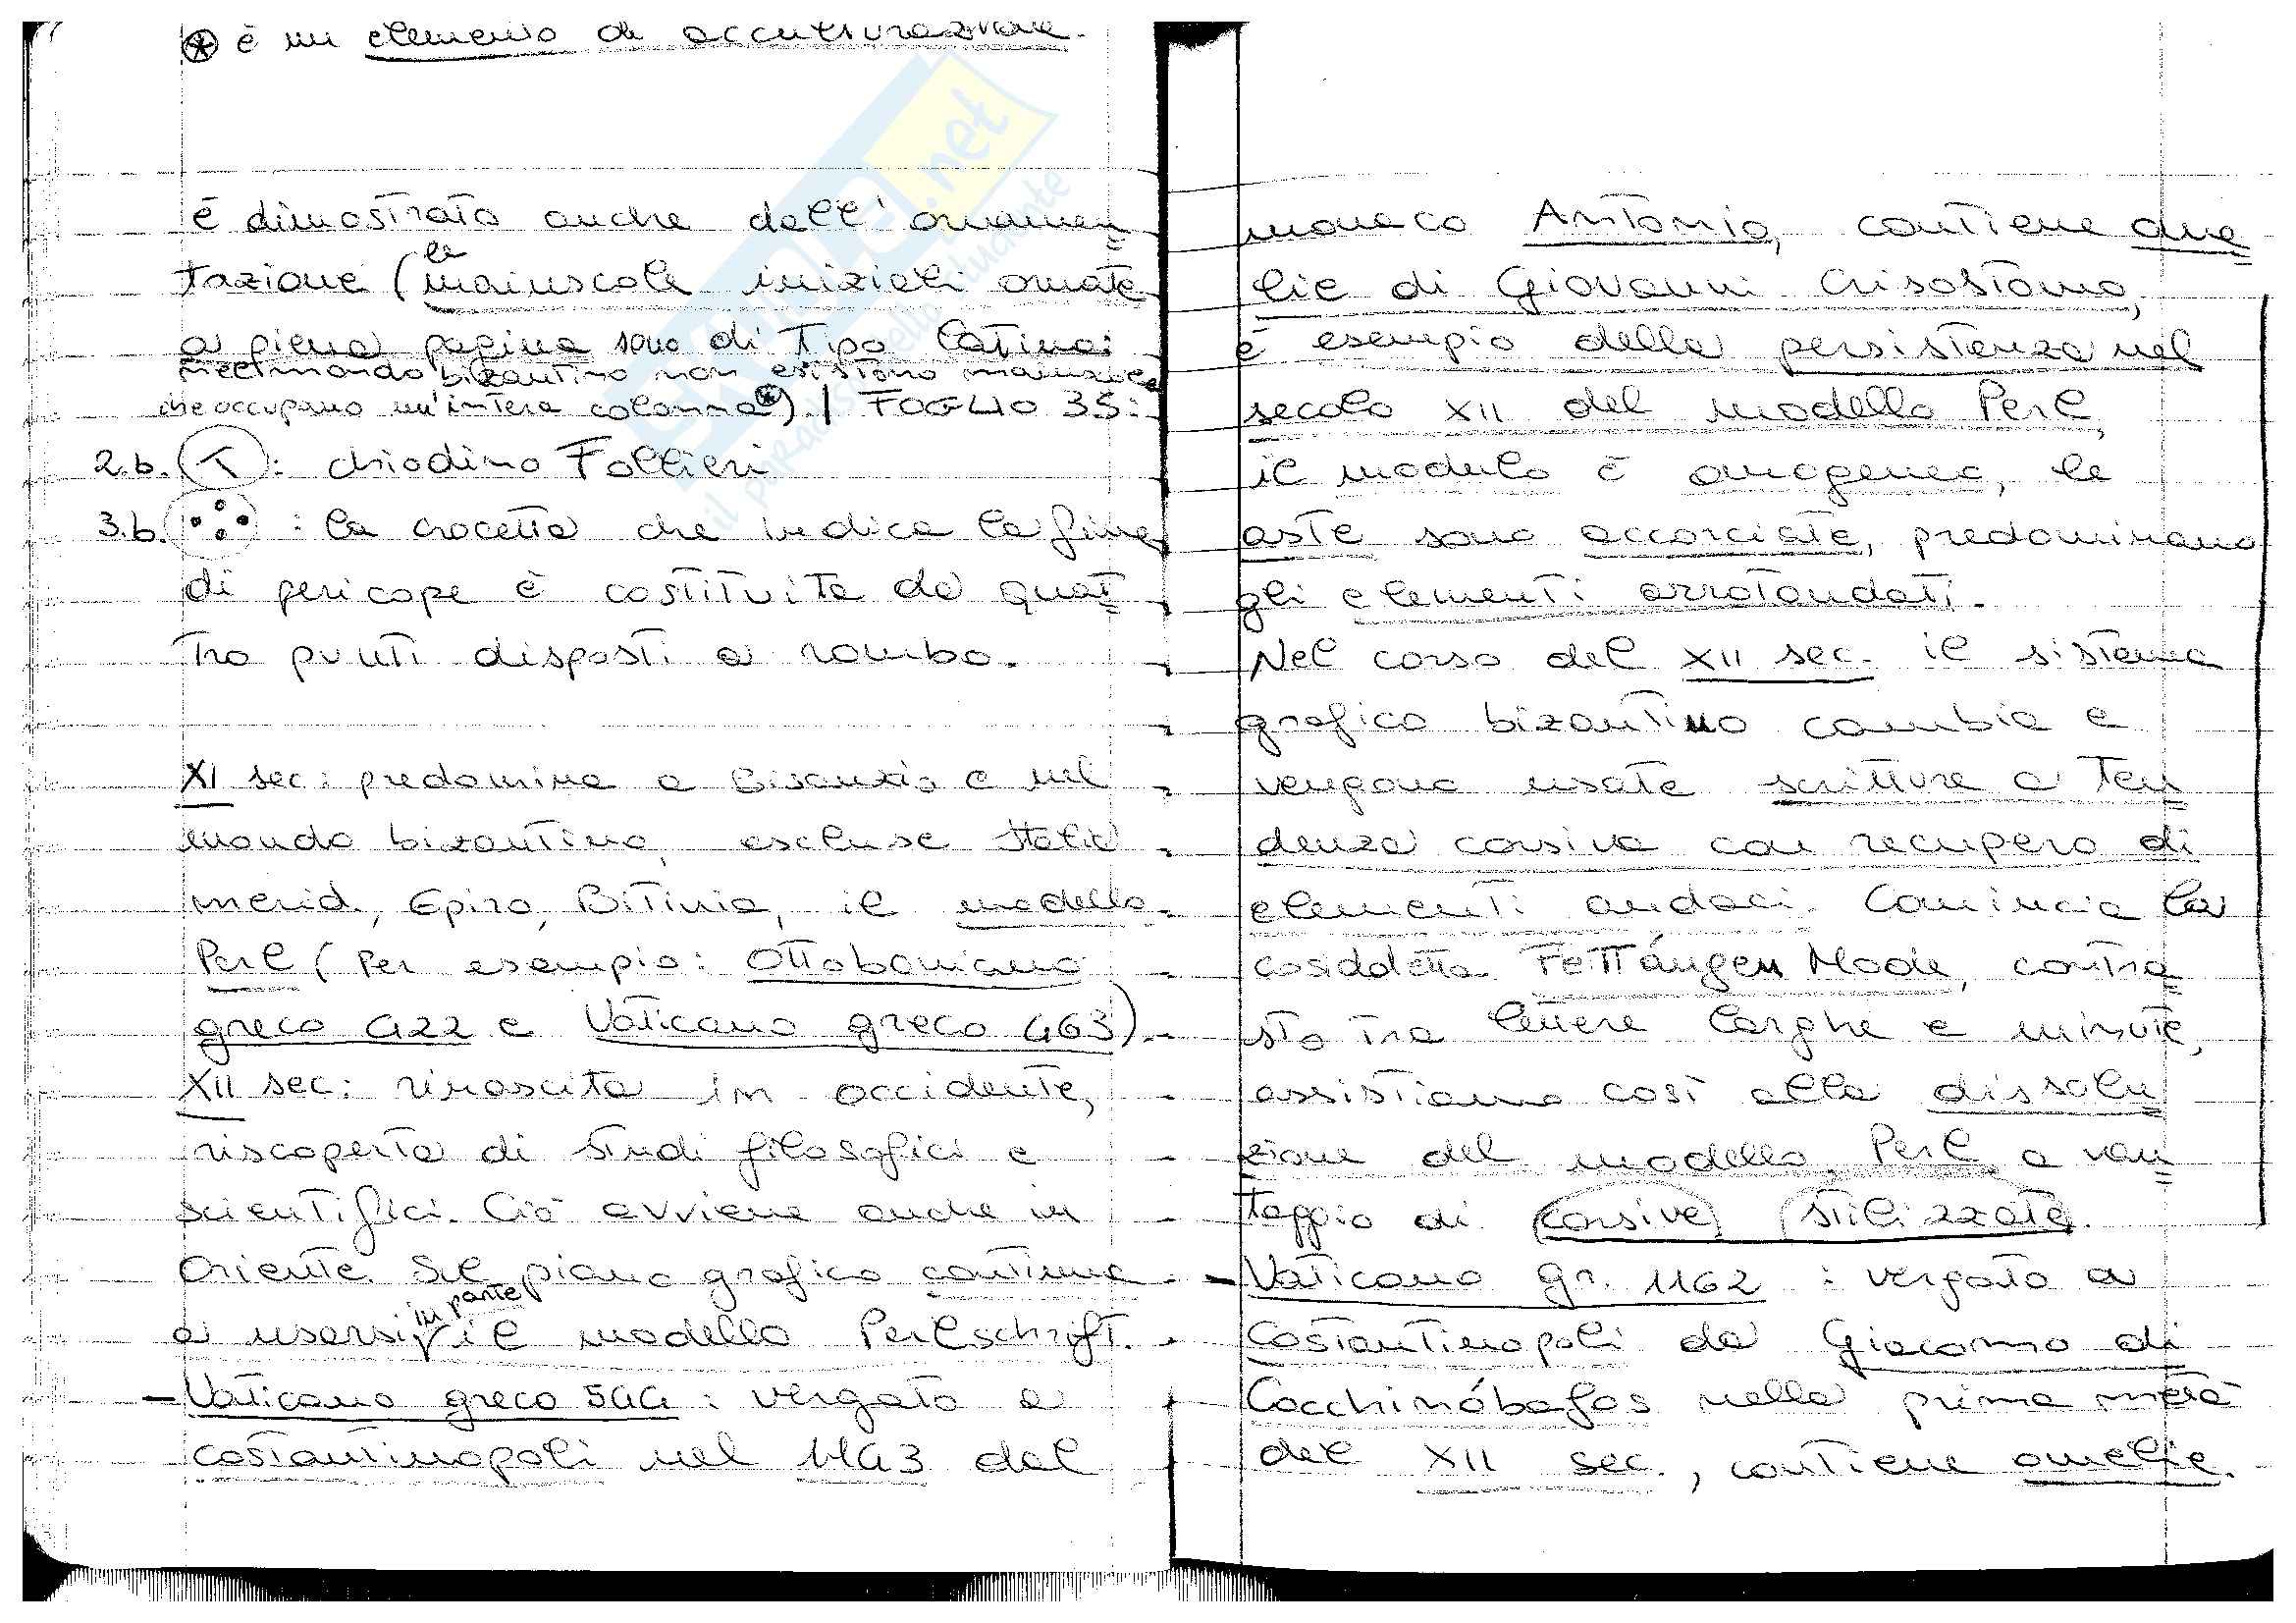 ⊛ è un elemento di acculturazione.
è dimostrato anche dall'ornamen
tazione (le maiuscole iniziali ornate
a piena pagina sono di tipo latino:
nel mondo bizantino non esistono maiuscole
che occupano un'intera colonna ⊛). / FOGLIO 35:
2.b. T : chiodino Follieri
3.b. : la crocetta che indica la fine
di pericope è costituita da quat
tro punti disposti a rombo.
XI sec: predomina a Bisanzio e nel
mondo bizantino, escluse Italia
merid, Epiro, Bitinia, il modello
Perl (Per esempio: Ottoboniano
greco 422 e Vaticano greco 463).
XII sec: rinascita in occidente,
riscoperta di studi filosofici e
scientifici. Ciò avviene anche in
Oriente. Sul piano grafico continua
a usarsi in parte il modello Perlschrift.
- Vaticano greco 544: vergato a
Costantinopoli nel 1143 dal
monaco Antonio, contiene ome
lie di Giovanni Crisostomo,
è esempio della persistenza nel
secolo XII del modello Perl,
il modulo è omogeneo, le
aste sono accorciate, predominano
gli elementi arrotondati.
Nel corso del XII sec. il sistema
grafico bizantino cambia e
vengono usate scritture a ten
denza corsiva con recupero di
elementi audaci. Comincia la
cosiddetta Fettäugen Mode, contra
sto tra lettere larghe e minute,
assistiamo così alla dissolu
zione del modello Perl a van
taggio di corsive stilizzate.
- Vaticano gr. 1162 : vergato a
Costantinopoli da Giacomo di
Cocchinóbafos nella prima metà
del XII sec., contiene omelie.
il paradiso dello studente
.net